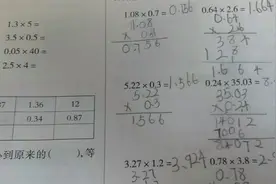 1.3 × 5 =
3.5 × 0.5 =
0.05 × 40 =
2.5 × 4 =
1.36 12
0.34 0.87
小到原来的( ),等
1.08 × 0.7 = 0.756
1.08
× 0.7
0.756
0.64 × 2.6 = 1.664
0.64
× 2.6
384
128
1.664
5.22 × 0.3 = 1.566
5.22
× 0.3
1.566
0.24 × 35.03 = 8.
35.03
× 0.24
14012
7006
84072
3.27 × 1.2 = 3.924
3.27
0.78 × 3.8 = 2.
0.78